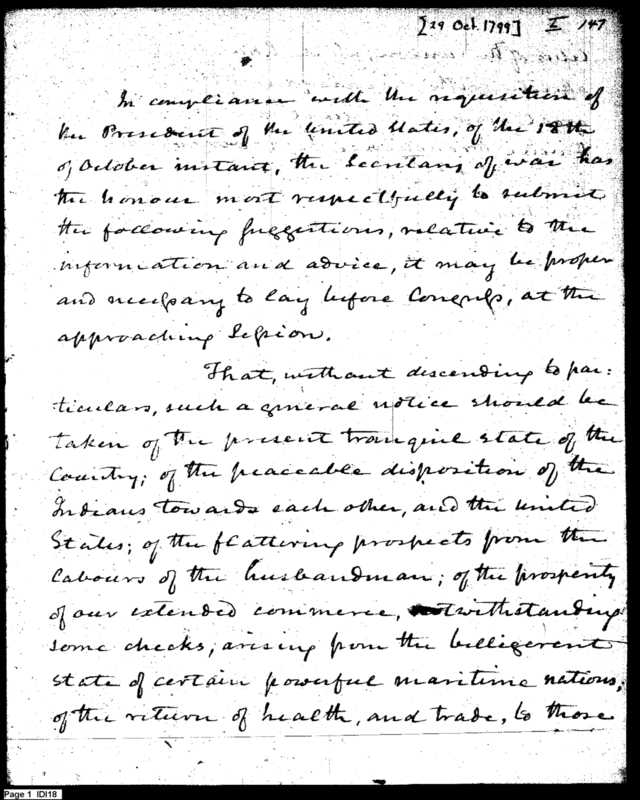 [29 Oct. 1799] I 147
In compliance with the requisition of
the President of the United States, of the 18th
of October instant, the Secretary of war has
the honour most respectfully to submit
the following suggestions, relative to the
information and advice, it may be proper
and necessary to lay before Congress, at the
approaching Session.
That, without descending to par:
ticulars, such a general notice should be
taken of the present tranquil state of the
Country; of the peaceable disposition of the
Indians towards each other, and the United
States; of the flattering prospects from the
labours of the husbandman; of the prosperity
of our extended commerce, notwithstanding
some checks, arising from the belligerent
state of certain powerful maritime nations;
of the return of health, and trade, to those
Page 1 IDI18